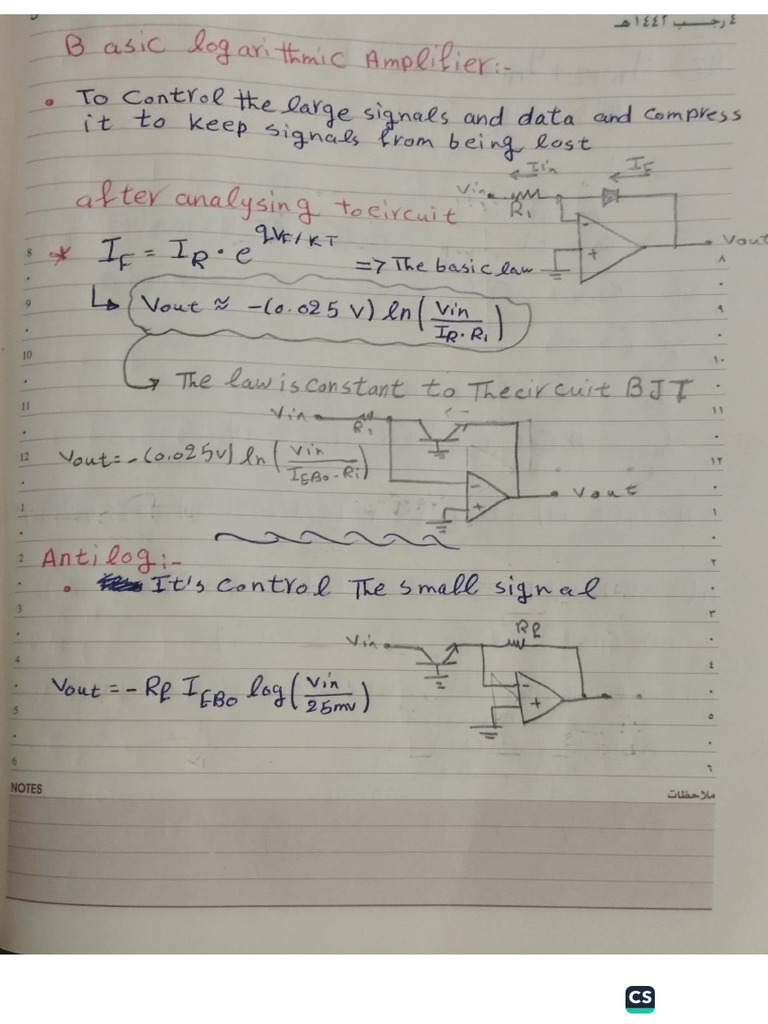 ٤ رجــــب ١٤٤٢هـ
Basic logarithmic Amplifier:-
• To control the large signals and data and compress
it to keep signals from being lost
after analysing to circuit
Vin R1 Iin IF - + Vout
* IF = IR · e^qVF/KT => The basic law
↳ Vout ≈ -(0.025 V) ln(Vin / IR · R1)
The law is constant to The circuit BJT
Vin R1 - + Vout
Vout = -(0.025V) ln(Vin / IEBO - Ri)
Antilog:-
• It's control The small signal
Vin Rf - +
Vout = - Rf IEBO log(Vin / 25mv)
8
9
10
11
12
1
2
3
4
5
6
٨
٩
١٠
١١
١٢
١
٢
٣
٤
٥
٦
NOTES ملاحظات
CS